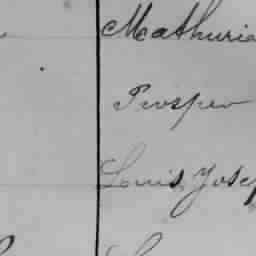 Mathurin
Prosper
Louis Josep